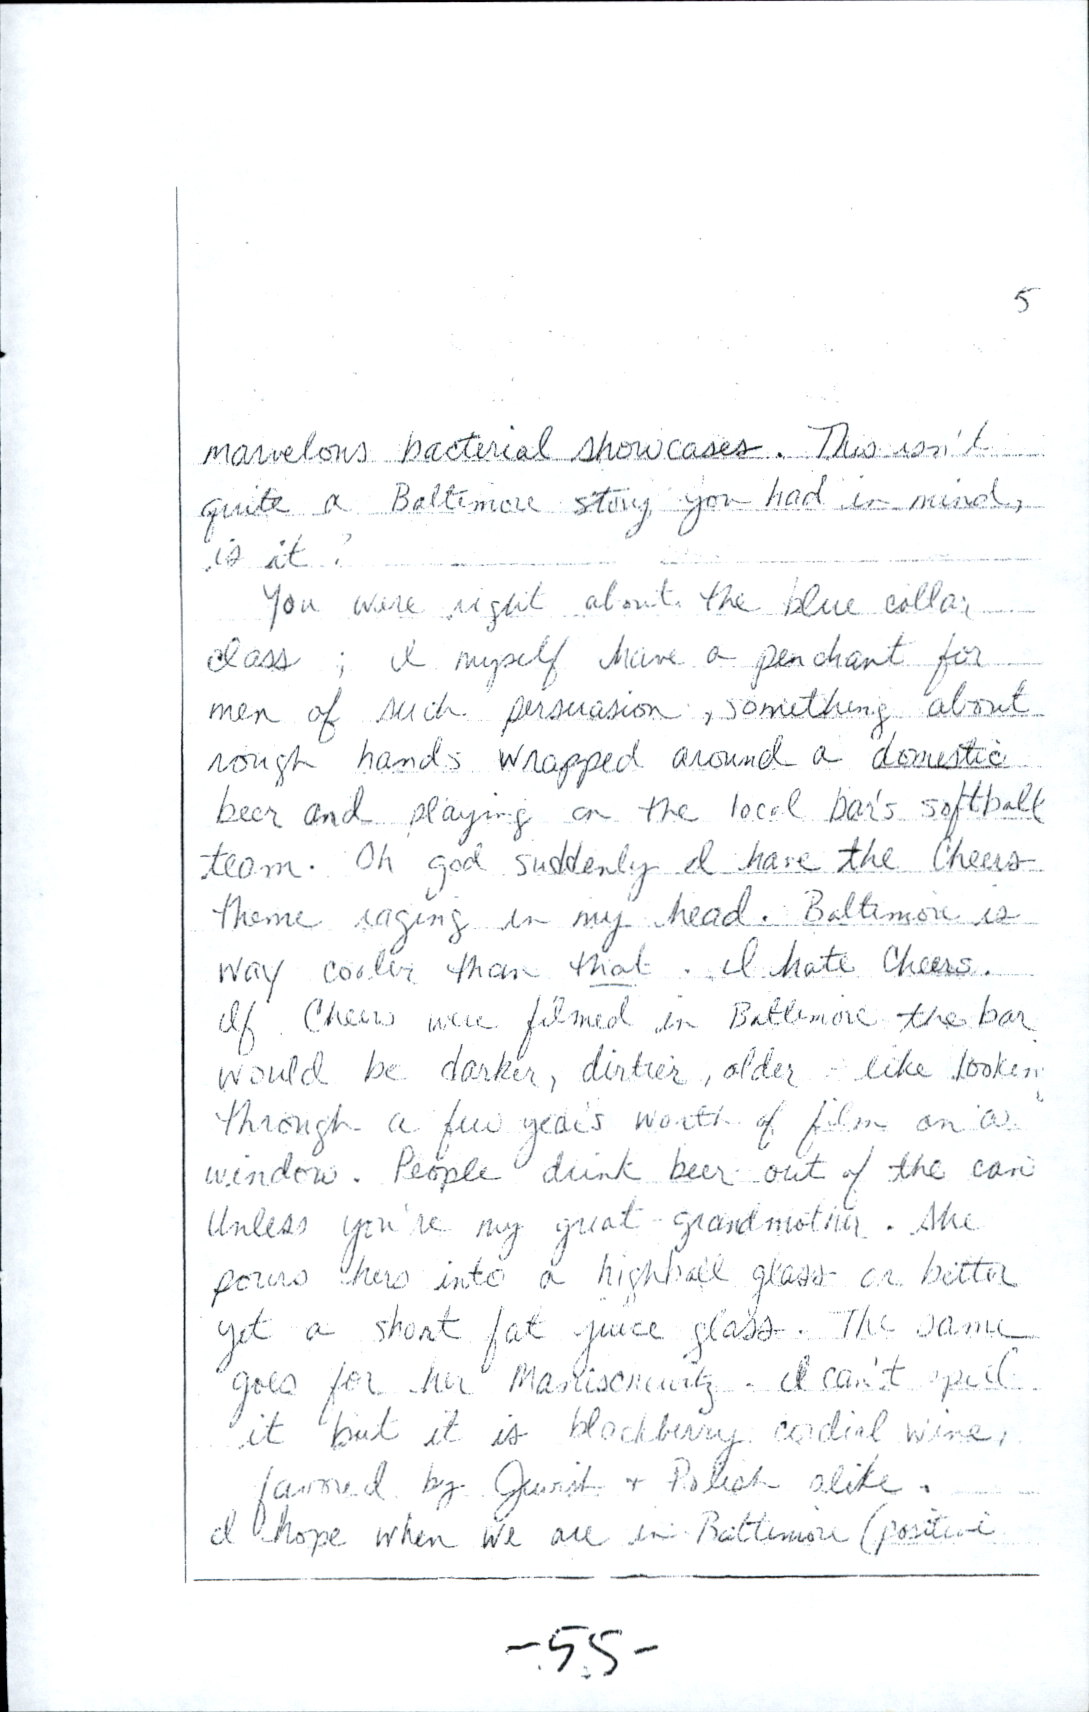 5
marvelous bacterial showcases. This isn't
quite a Baltimore story you had in mind,
is it?
You were right about the blue collar
class; I myself have a penchant for
men of such persuasion, something about
rough hands wrapped around a domestic
beer and playing on the local bar's softball
team. Oh god suddenly I have the Cheers
theme raging in my head. Baltimore is
way cooler than that. I hate Cheers.
If Cheers were filmed in Baltimore the bar
would be darker, dirtier, older - like lookin'
through a few year's worth of film on a
window. People drink beer out of the can
Unless you're my great-grandmother. She
pours hers into a highball glass or better
yet a short fat juice glass. The same
goes for her . I can't spell
it but it is blackberry cordial wine,
favored by Jewish + Polish alike.
I hope when we are in Baltimore (positive
-55-